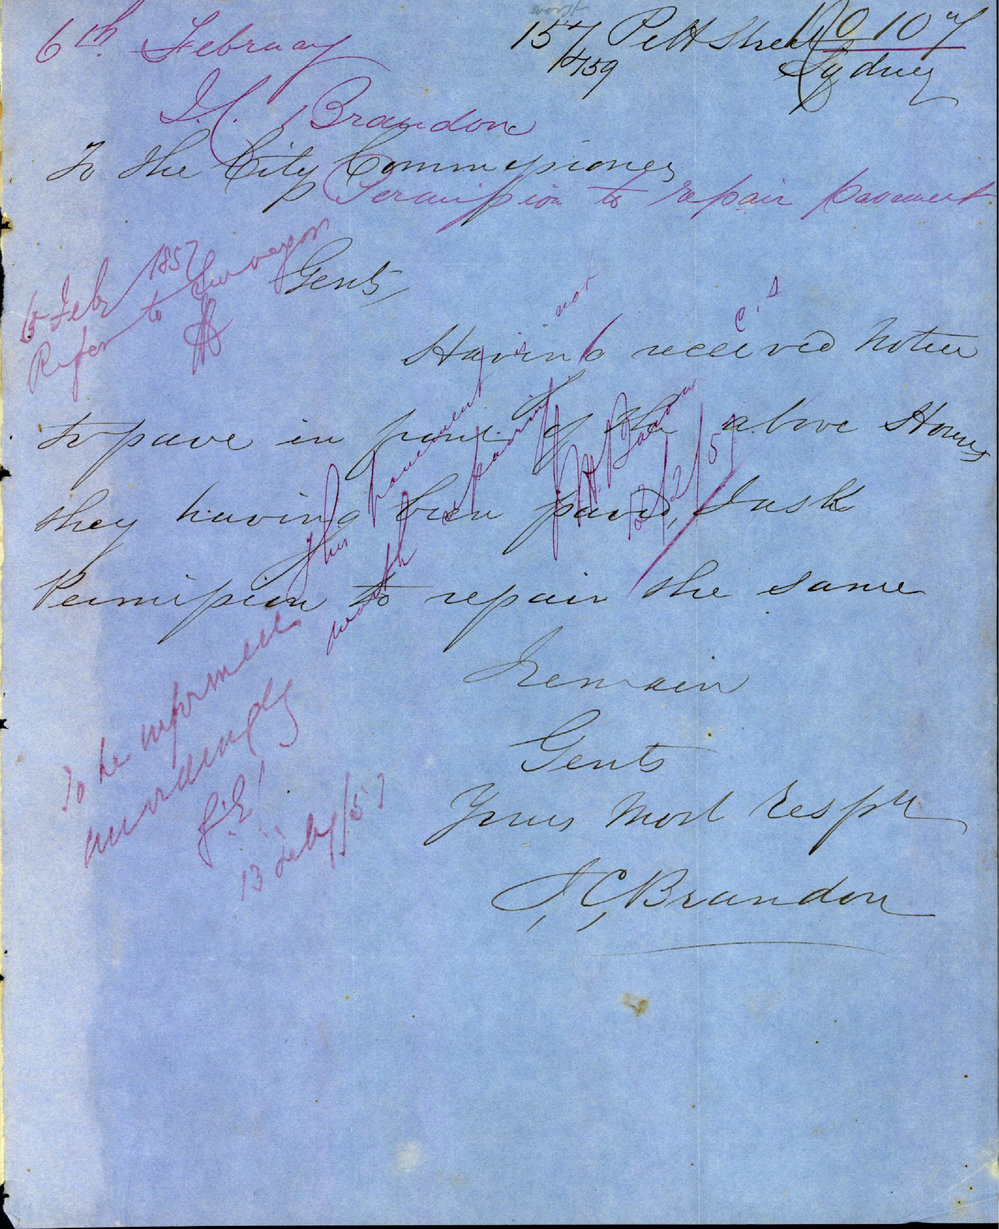 6th February
157/159 Pitt Street
No 107
Sydney
J.C. Brandon
To the City Commissioners
Permission to repair pavement
6 Feby 1857
Refer to Surveyor
Gents,
Having received Notice
to pave in front of the above Houses
they having been paved, I ask
Permission to repair the same
I remain
Gents
Yours Most Respfl
J, C, Brandon
This pavement is not
worth repairing
12/2/57
To be informed
accordingly
13 Feby/57